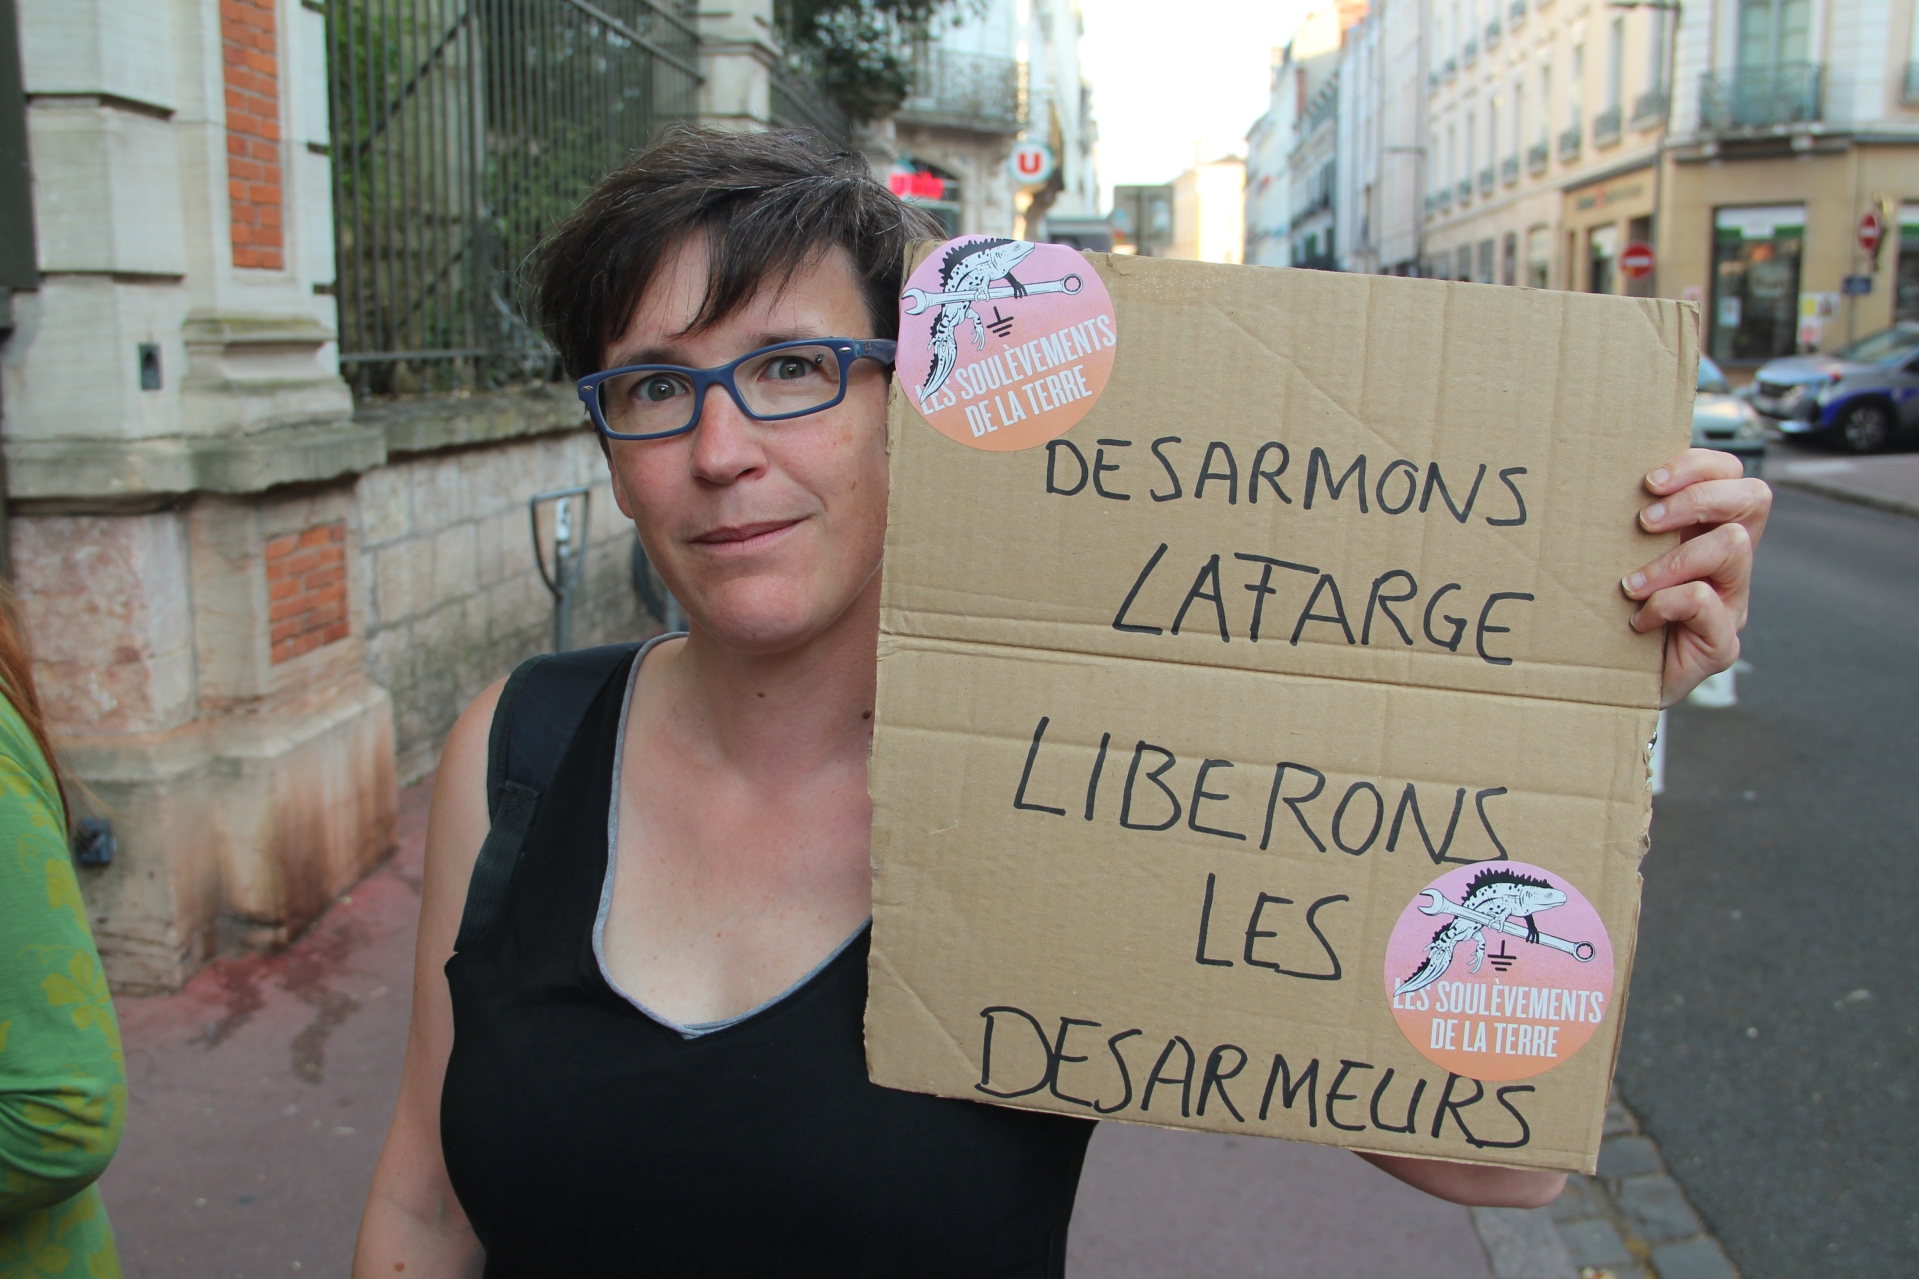 LES SOULÈVEMENTS
DE LA TERRE
DESARMONS
LAFARGE
LIBERONS
LES
DESARMEURS
LES SOULÈVEMENTS
DE LA TERRE
U